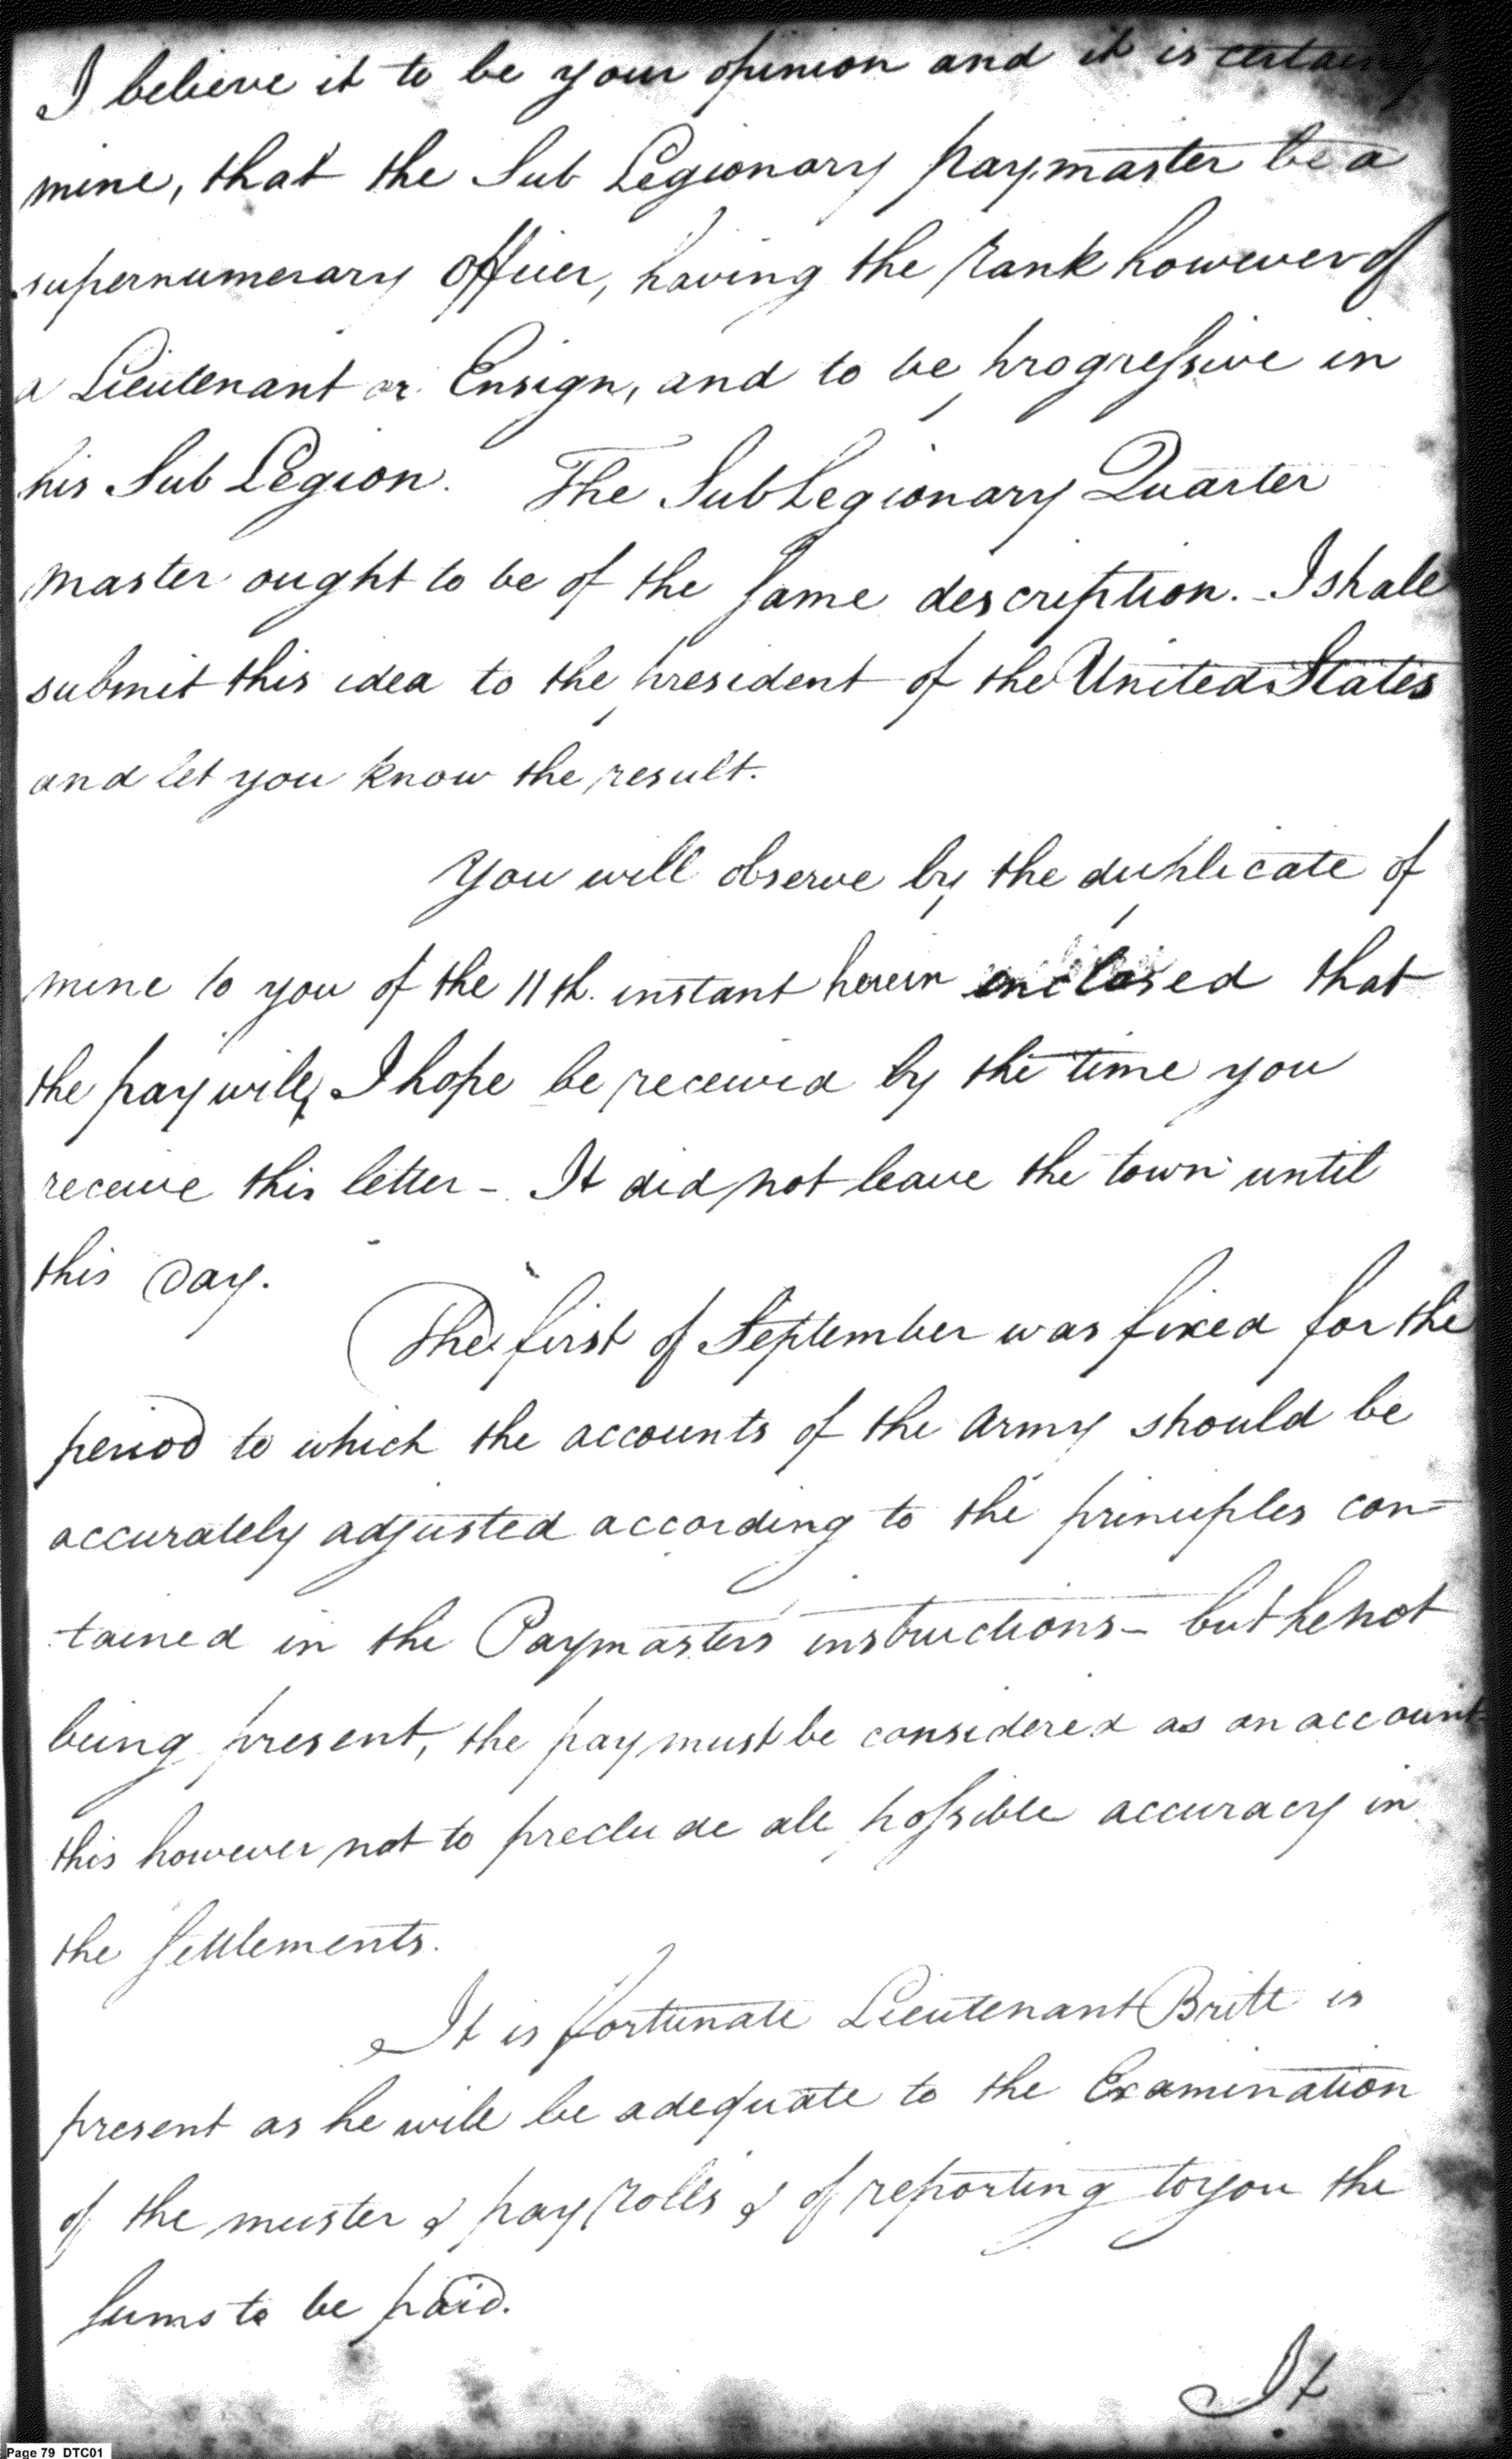 I believe it to be your opinion and it is certainly
mine, that the Sub Legionary paymaster be a
supernumerary Officer, having the rank however of
a Lieutenant or Ensign, and to be progressive in
his Sub Legion. The Sub Legionary Quarter
master ought to be of the same description. - I shall
submit this idea to the president of the United States
and let you know the result.
You will observe by the duplicate of
mine to you of the 11th. instant herein enclosed that
the pay will, I hope be received by the time you
receive this letter - It did not leave the town until
this day.
The first of September was fixed for the
period to which the accounts of the Army should be
accurately adjusted according to the principles con=
tained in the Paymasters instructions - but he not
being present, the pay must be considered as on account
this however not to preclude all possible accuracy in
the settlements.
It is fortunate Lieutenant Britt is
present as he will be adequate to the Examination
of the muster & pay rolls & of reporting to you the
sums to be paid.
It
Page 79 DTC01